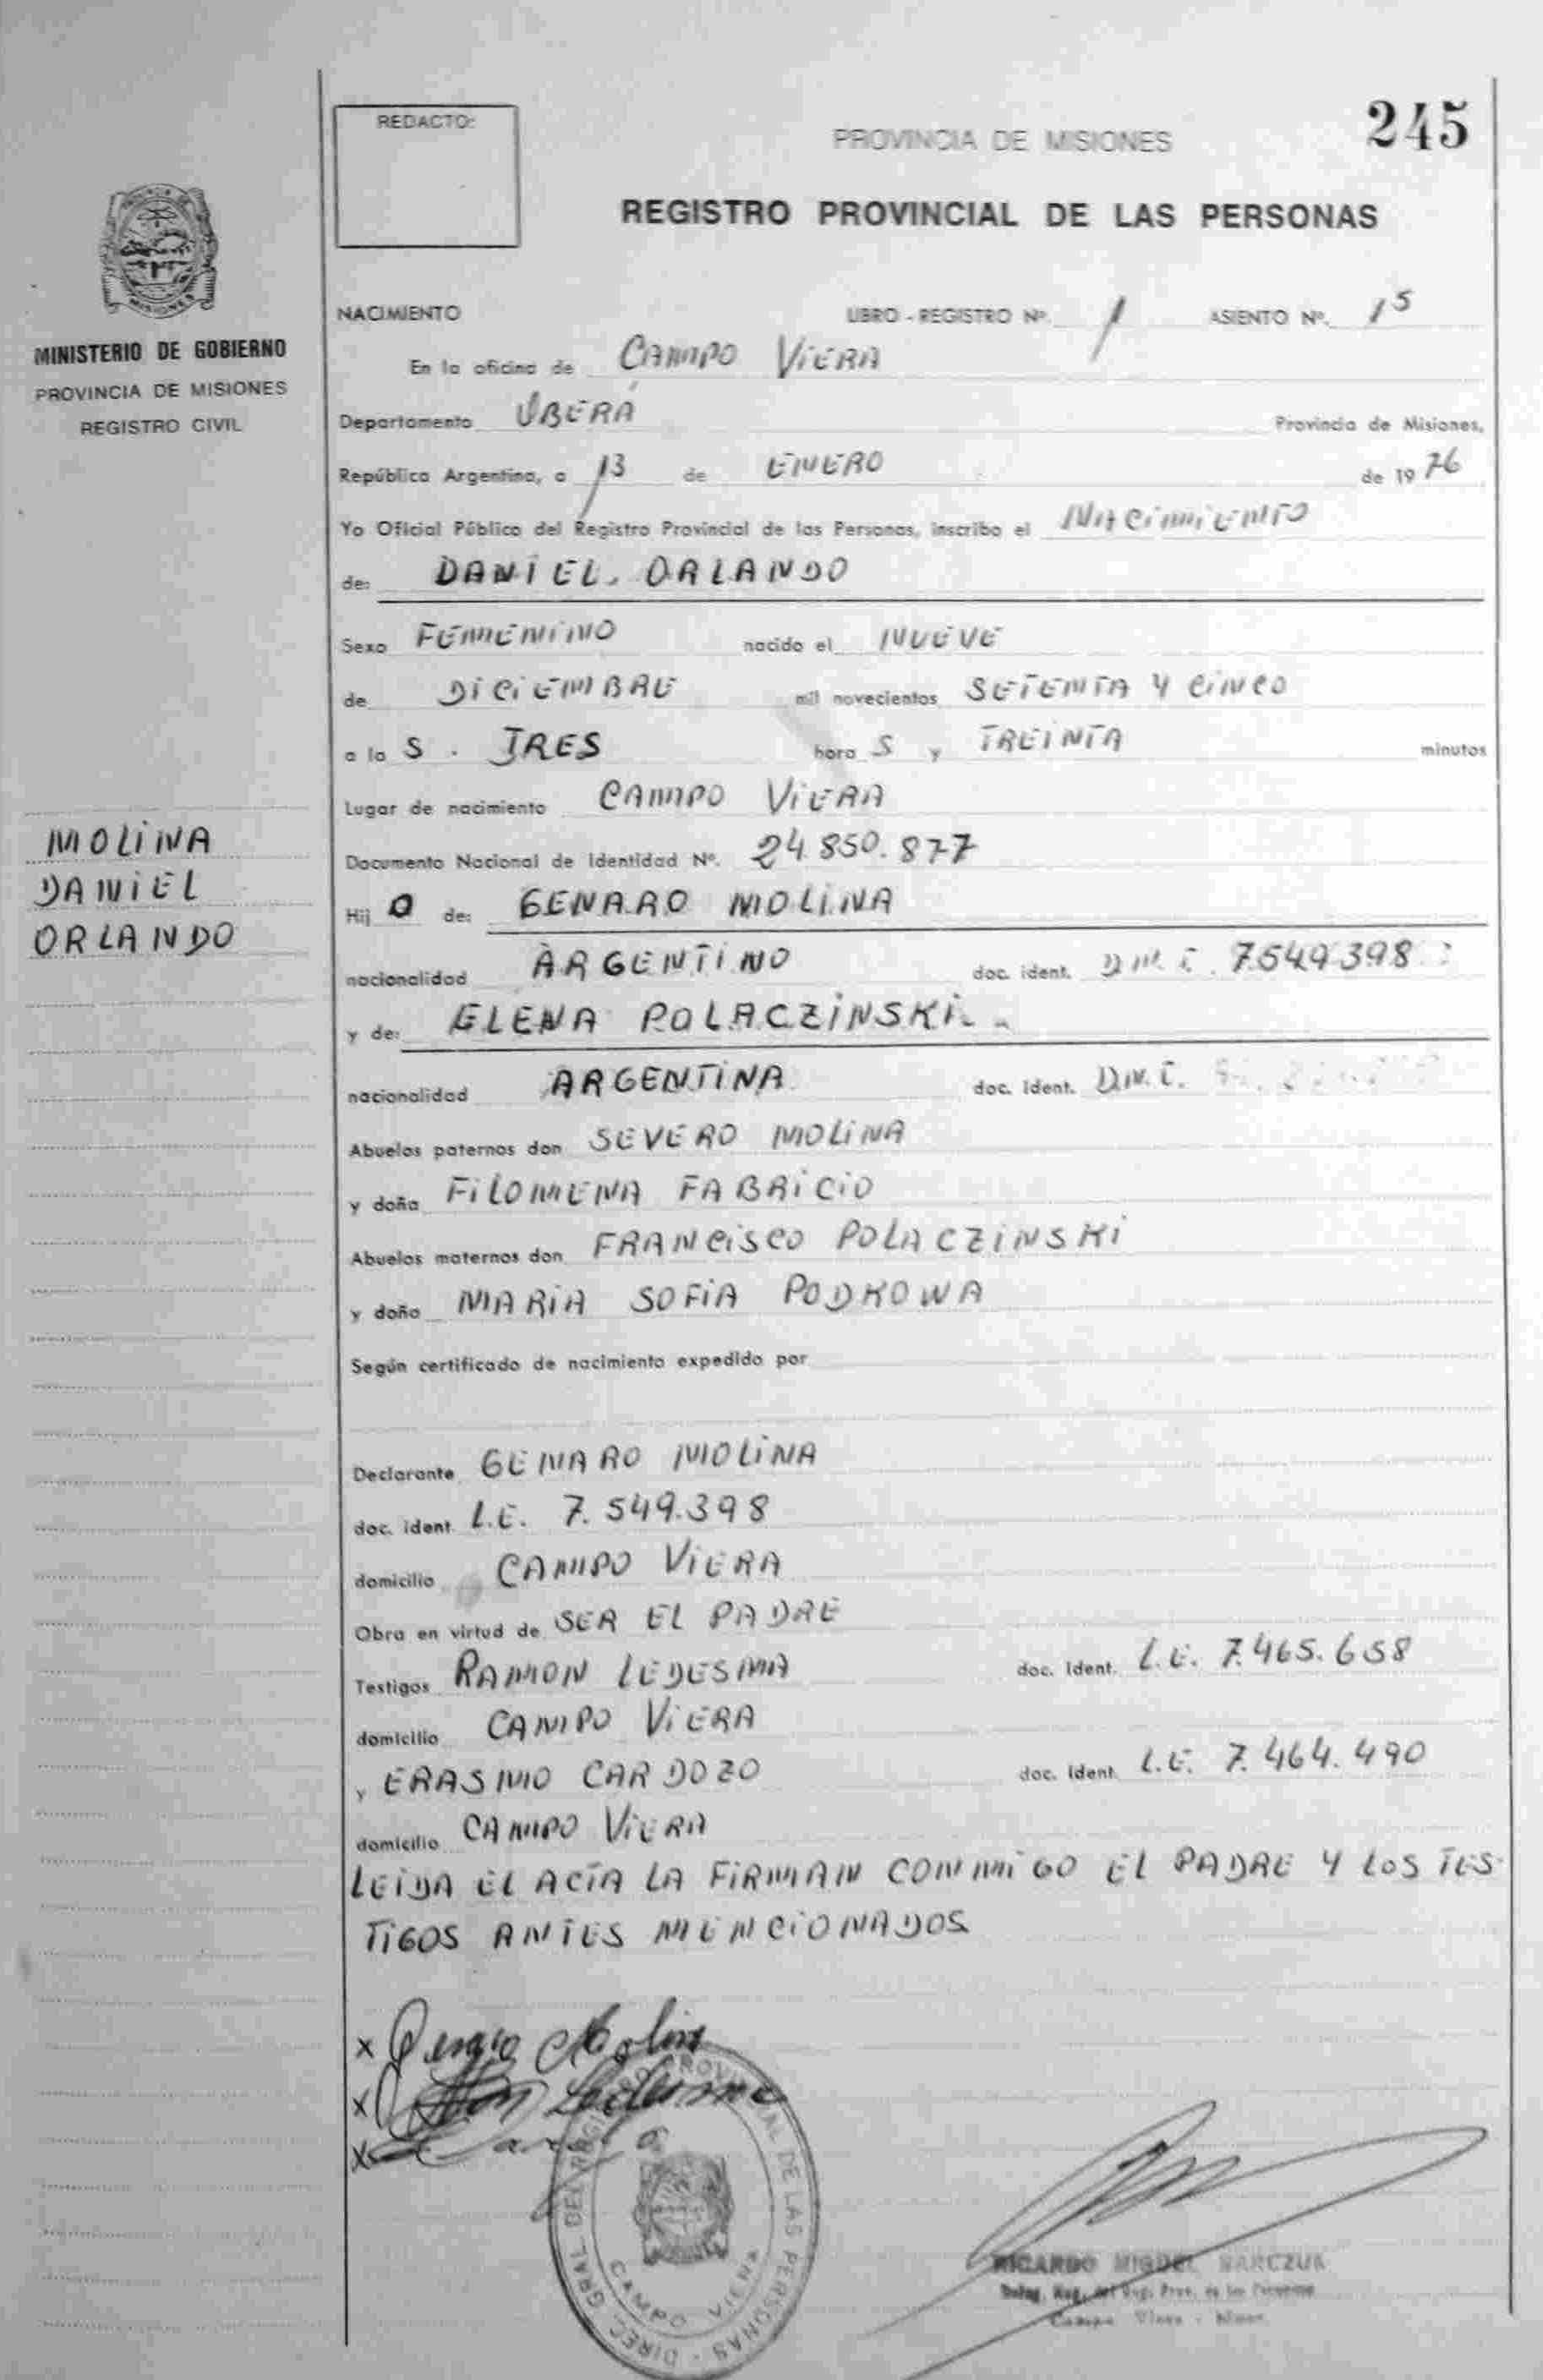 REDACTO:
PROVINCIA DE MISIONES
245
REGISTRO PROVINCIAL DE LAS PERSONAS
MINISTERIO DE GOBIERNO
PROVINCIA DE MISIONES
REGISTRO CIVIL
NACIMIENTO LIBRO - REGISTRO Nº. 1 ASIENTO Nº. 15
En la oficina de CAMPO VIERA
Departamento OBERÁ Provincia de Misiones,
República Argentina, a 13 de ENERO de 1976
Yo Oficial Público del Registro Provincial de las Personas, inscribo el NACIMIENTO
de: DANIEL. ORLANDO
Sexo FEMENINO nacido el NUEVE
de DICIEMBRE mil novecientos SETENTA Y CINCO
a la S. TRES hora S y TREINTA minutos
Lugar de nacimiento CAMPO VIERA
MOLINA
DANIEL
ORLANDO
Documento Nacional de Identidad Nº. 24.850.877
Hij O de: GENARO MOLINA
nacionalidad ARGENTINO doc. ident. D.N.I. 7.549.398
y de: ELENA POLACZINSKI
nacionalidad ARGENTINA doc. ident. D.N.I.
Abuelos paternos don SEVERO MOLINA
y doña FILOMENA FABRICIO
Abuelos maternos don FRANCISCO POLACZINSKI
y doña MARIA SOFIA PODKOWA
Según certificado de nacimiento expedido por
Declarante GENARO MOLINA
doc. ident. L.E. 7.549.398
domicilio CAMPO VIERA
Obra en virtud de SER EL PADRE
Testigos RAMON LEDESMA doc. ident. L.E. 7.465.658
domicilio CAMPO VIERA
y ERASMO CARDOZO doc. ident. L.E. 7.464.490
domicilio CAMPO VIERA
LEIDA EL ACTA LA FIRMAN CONMIGO EL PADRE Y LOS TES-
TIGOS ANTES MENCIONADOS
x Molina
x Ledesma
x
DIREC. GRAL. DEL REGISTRO PROVINCIAL DE LAS PERSONAS
CAMPO VIERA
RICARDO MIGUEL
Campo Viera